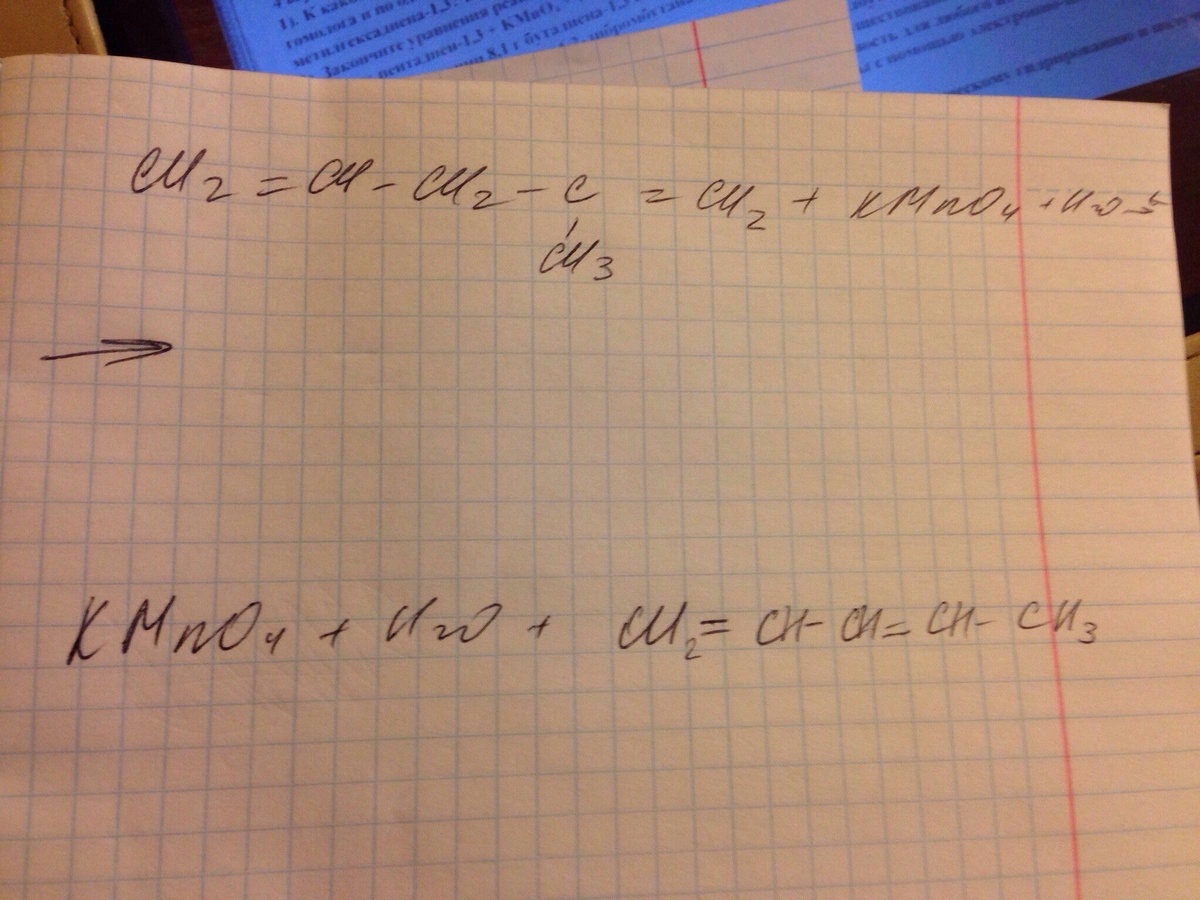 1). К како
гомолога и по
метилгексадиена-1,3
Закончите уравнения реа
пентадиен-1,3 + KMnO₄
8,1 г бутадиена-1,3
ность для любого
с помощью электронно-
ческому гидрированию и
CH₂ = CH - CH₂ - C = CH₂ + KMnO₄ + H₂O →
CH₃
→
KMnO₄ + H₂O + CH₂ = CH - CH = CH - CH₃